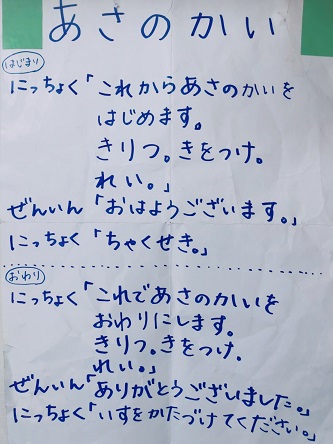 あさのかい
はじまり
にっちょく「これからあさのかいを
はじめます。
きりつ。きをつけ。
れい。」
ぜんいん「おはようございます。」
にっちょく「ちゃくせき。」
おわり
にっちょく「これであさのかいを
おわりにします。
きりつ。きをつけ。
れい。」
ぜんいん「ありがとうございました。」
にっちょく「いすをかたづけてください。」